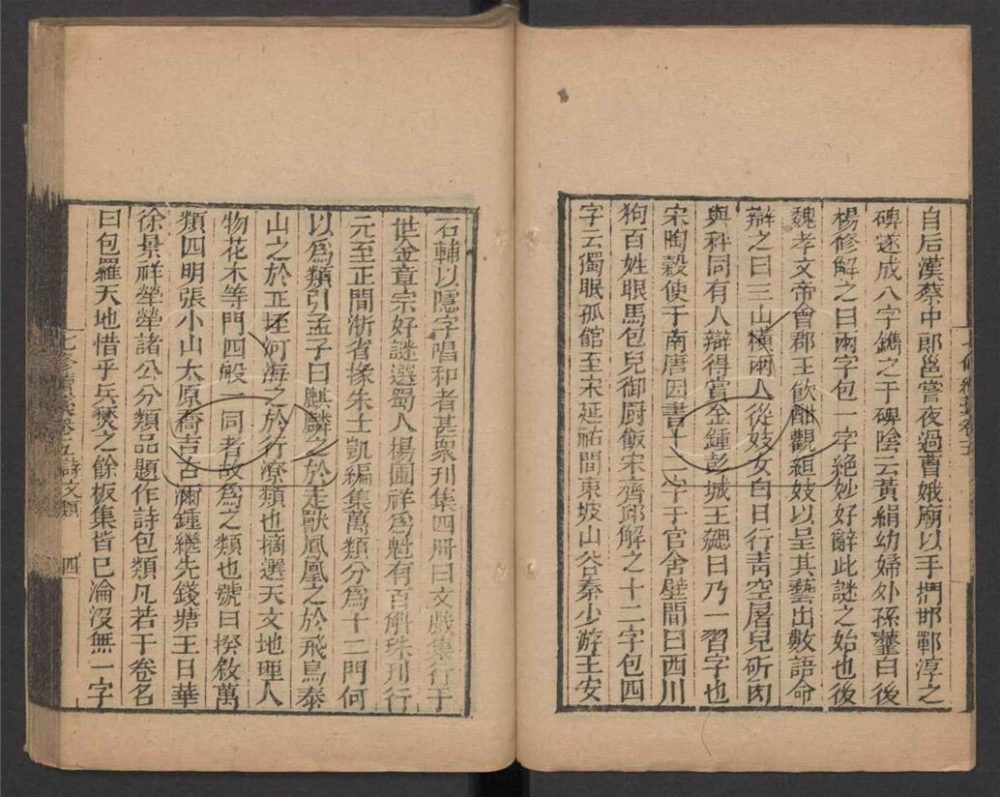 自后漢蔡中郎邕嘗夜過曹娥廟以手捫邯鄲淳之
碑遂成八字鐫之于碑陰云黃絹幼婦外孫虀臼後
楊修解之曰兩字包一字絕妙好辭此謎之始也後
魏孝文帝會郡王飲酣觀絙妓以呈其藝出數語命
辯之曰三山橫兩人從妓女白日行青空屠兒斫肉
與秤同有人辯得賞金鍾彭城王勰曰乃一習字也
宋陶榖使于南唐因書十二字于官舍壁間曰西川
狗百姓眼馬包兒御厨飯宋齊邱解之十二字包四
字云獨眠孤館至宋延祐間東坡山谷秦少游王安
石輔以隱字唱和者甚衆刊集四冊曰文戲集行于
世金章宗好謎選蜀人楊圃祥爲魁有百斛珠刊行
元至正間浙省掾朱士凱編集萬類分爲十二門何
以爲類引孟子曰麒麟之於走獸鳳凰之於飛鳥泰
山之於丘垤河海之於行潦類也摘選天文地理人
物花木等門四般一同者故爲之類也號曰揆敘萬
類四明張小山太原喬吉古㴾鍾繼先錢塘王日華
徐景祥犖犖諸公分類品題作詩包類凡若干卷名
曰包羅天地惜乎兵燹之餘板集皆巳淪沒無一字
七修續藁卷五詩文類 四